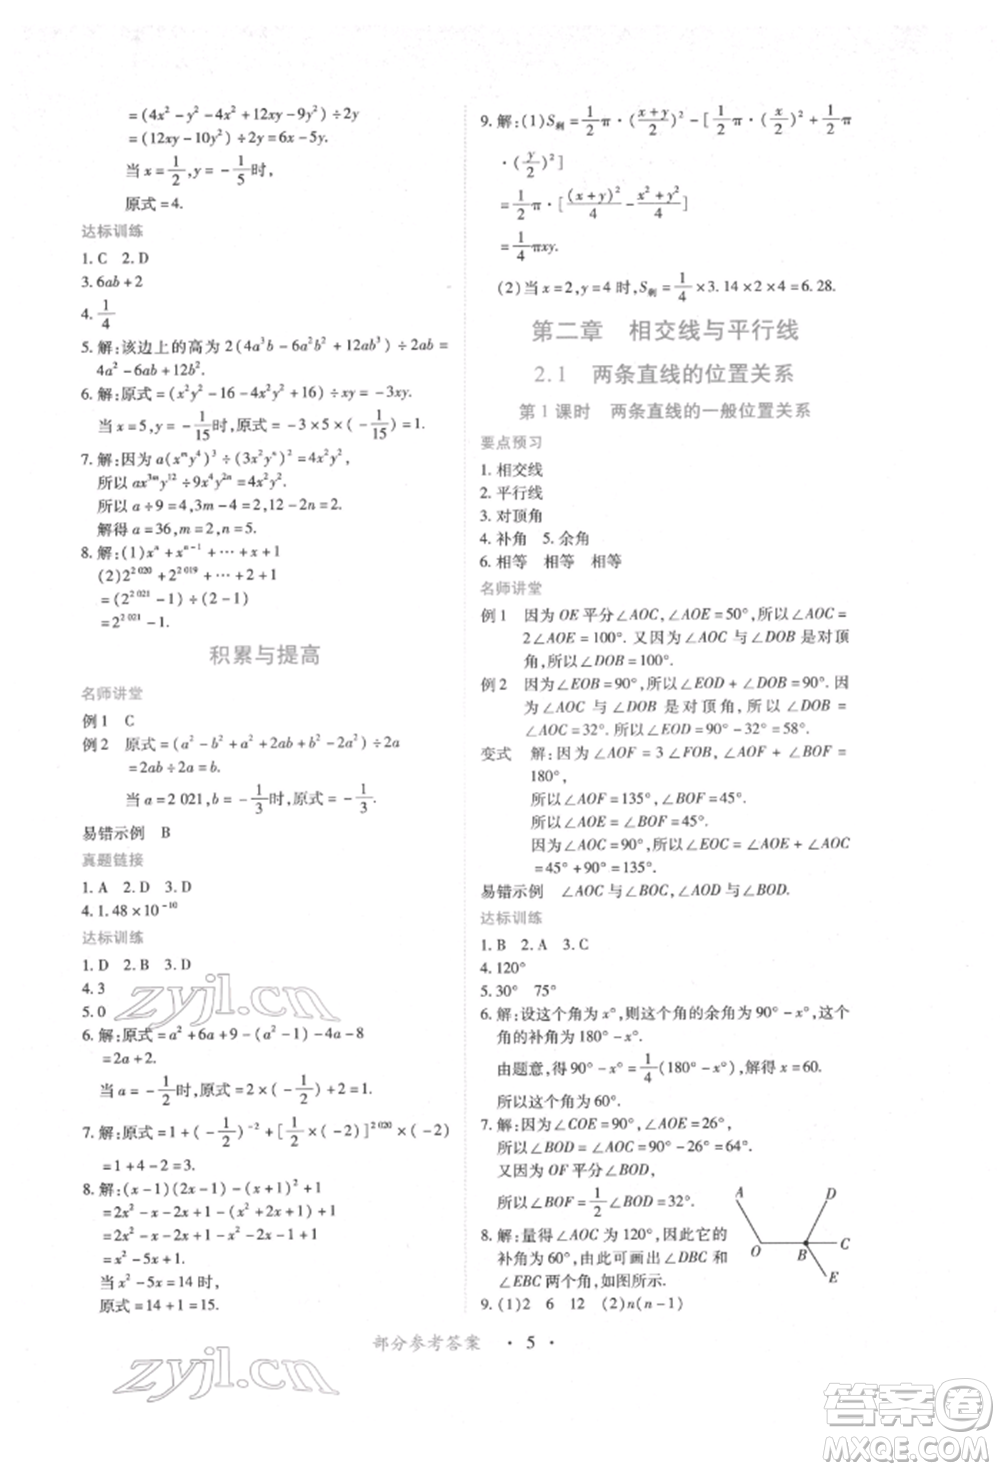 =(4x²-y²-4x²+12xy-9y²)÷2y
=(12xy-10y²)÷2y=6x-5y.
当x=1/2,y=-1/5时,
原式=4.
达标训练
1.C 2.D
3.6ab+2
4.1/4
5.解:该边上的高为2(4a³b-6a²b²+12ab³)÷2ab=
4a²-6ab+12b².
6.解:原式=(x²y²-16-4x²y²+16)÷xy=-3xy.
当x=5,y=-1/15时,原式=-3×5×(-1/15)=1.
7.解:因为a(xᵐy⁴)³÷(3x²yⁿ)²=4x²y²,
所以ax³ᵐy¹²÷9x⁴y²ⁿ=4x²y².
所以a÷9=4,3m-4=2,12-2n=2.
解得a=36,m=2,n=5.
8.解:(1)xⁿ+xⁿ⁻¹+…+x+1
(2)2² ⁰²⁰+2² ⁰¹⁹+…+2+1
=(2² ⁰²¹-1)÷(2-1)
=2² ⁰²¹-1.
积累与提高
名师讲堂
例1 C
例2 原式=(a²-b²+a²+2ab+b²-2a²)÷2a
=2ab÷2a=b.
当a=2 021,b=-1/3时,原式=-1/3.
易错示例 B
真题链接
1.A 2.D 3.D
4.1.48×10⁻¹⁰
达标训练
1.D 2.B 3.D
4.3
5.0
6.解:原式=a²+6a+9-(a²-1)-4a-8
=2a+2.
当a=-1/2时,原式=2×(-1/2)+2=1.
7.解:原式=1+(-1/2)⁻²+[1/2×(-2)]² ⁰²⁰×(-2)
=1+4-2=3.
8.解:(x-1)(2x-1)-(x+1)²+1
=2x²-x-2x+1-(x²+2x+1)+1
=2x²-x-2x+1-x²-2x-1+1
=x²-5x+1.
当x²-5x=14时,
原式=14+1=15.
9.解:(1)S剩=1/2π·((x+y)/2)²-[1/2π·(x/2)²+1/2π
·(y/2)²]
=1/2π·[(x+y)²/4-(x²+y²)/4]
=1/4πxy.
(2)当x=2,y=4时,S剩=1/4×3.14×2×4=6.28.
第二章 相交线与平行线
2.1 两条直线的位置关系
第1课时 两条直线的一般位置关系
要点预习
1.相交线
2.平行线
3.对顶角
4.补角 5.余角
6.相等 相等 相等
名师讲堂
例1 因为OE平分∠AOC,∠AOE=50°,所以∠AOC=
2∠AOE=100°.又因为∠AOC与∠DOB是对顶
角,所以∠DOB=100°.
例2 因为∠EOB=90°,所以∠EOD+∠DOB=90°.因
为∠AOC与∠DOB是对顶角,所以∠DOB=
∠AOC=32°.所以∠EOD=90°-32°=58°.
变式 解:因为∠AOF=3∠FOB,∠AOF+∠BOF=
180°,
所以∠AOF=135°,∠BOF=45°.
所以∠AOE=∠BOF=45°.
又因为∠EOC=90°,所以∠AOC=∠AOE+∠EOC=
45°+90°=135°.
易错示例 ∠AOC与∠BOC,∠AOD与∠BOD.
达标训练
1.B 2.A 3.C
4.120°
5.30° 75°
6.解:设这个角为x°,则这个角的余角为90°-x°,这个
角的补角为180°-x°.
由题意,得90°-x°=1/4(180°-x°),解得x=60.
所以这个角为60°.
7.解:因为∠COE=90°,∠AOE=26°,
所以∠BOD=∠AOC=90°-26°=64°.
又因为OF平分∠BOD,
所以∠BOF=1/2∠BOD=32°.
8.解:量得∠AOC为120°,因此它的
补角为60°,由此可画出∠DBC和
∠EBC两个角,如图所示.
A
D
O
B
C
E
9.(1)2 6 12 (2)n(n-1)
部分参考答案 ·5·
zyjl.cn
zyjl.cn
答案圈
MXQE.COM